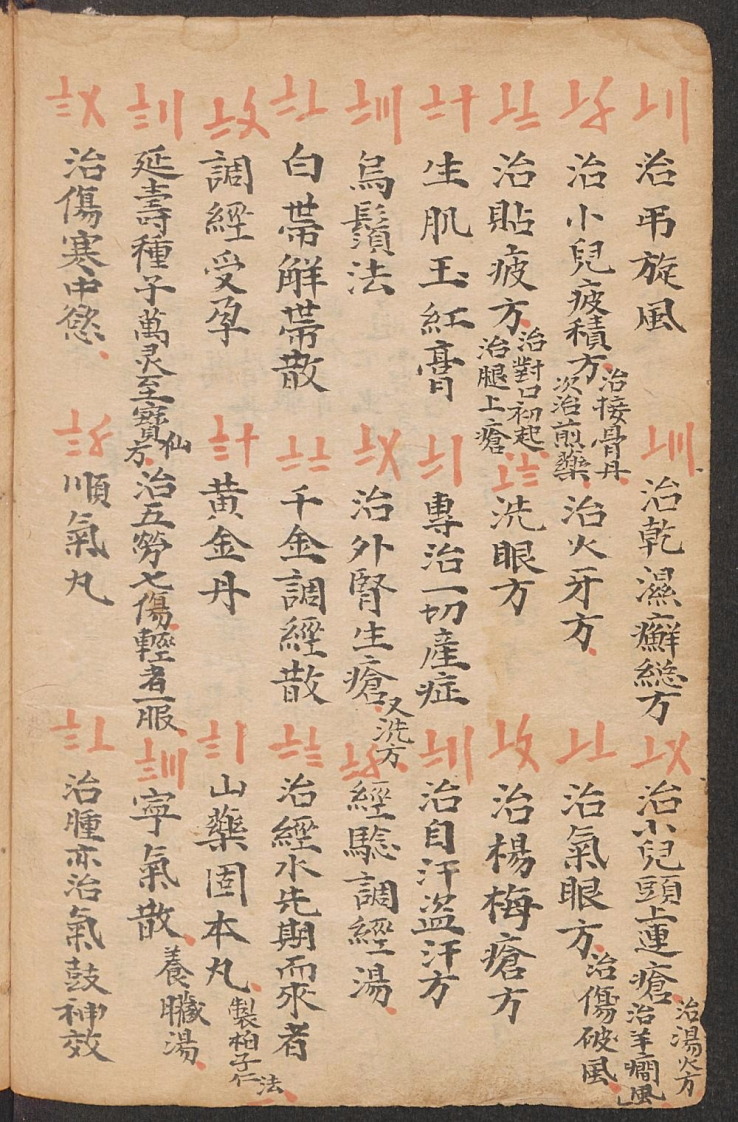 〦〢 治弔旋風
〦〣 治乾濕癬總方
〦〤 治小兒頭上連瘡
治湯火方
治羊癇風
〦〥 治小兒疲積方
治接骨丹
次治煎藥
治火牙方
〦〦 治氣眼方
治傷破風
〦〧 治貼疲方
治對口初起
治腿上瘡
〦〨 洗眼方
〦〩 治楊梅瘡方
〧十 生肌玉紅膏
〧〡 專治一切產症
〧〢 治自汗盗汗方
〧〣 烏鬚法
〧〤 治外腎生瘡
又洗方
〧〥 經驗調經湯
〧〦 白带解带散
〧〧 千金調經散
〧〨 治經水先期而來者
〧〩 調經受孕
〨十 黄金丹
〨〡 山藥固本丸
製柏子仁法
〨〢 延壽種子萬灵至寶仙方
治五勞七傷輕者一服
〨〣 寧氣散
養臟湯
〨〤 治傷寒中慾
〨〥 順氣丸
〨〦 治腫亦治氣鼓神效